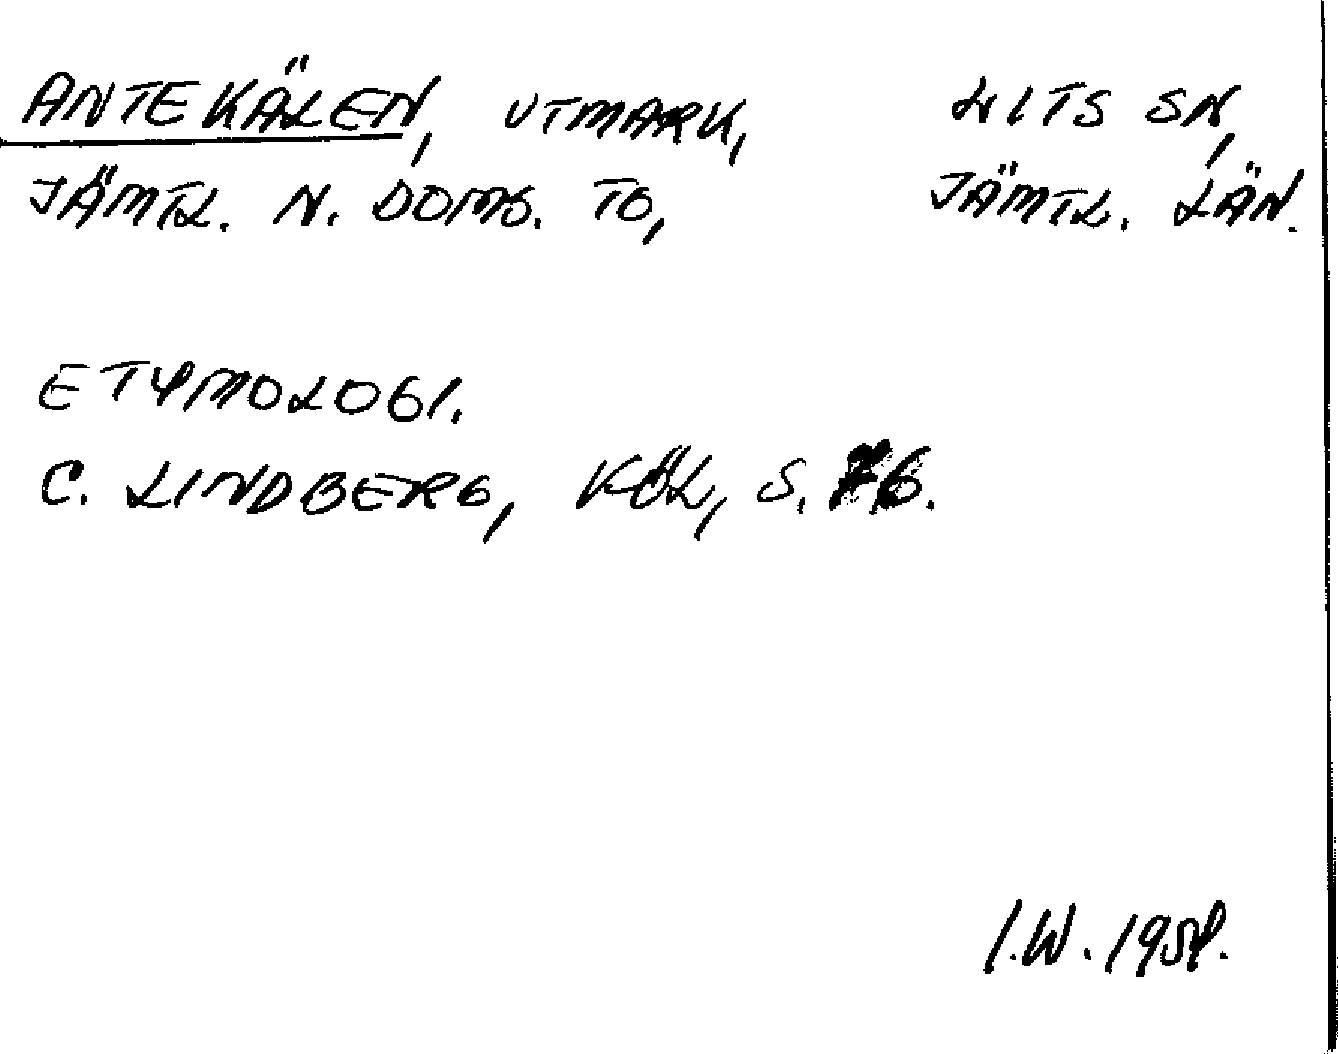 ANTEKÄLEN, UTMARK, LITS SN,
JÄMTL. N. DOMS. TO, JÄMTL. LÄN.
ETYMOLOGI.
C. LINDBERG, KÖL, S. 76.
I.W. 1959.